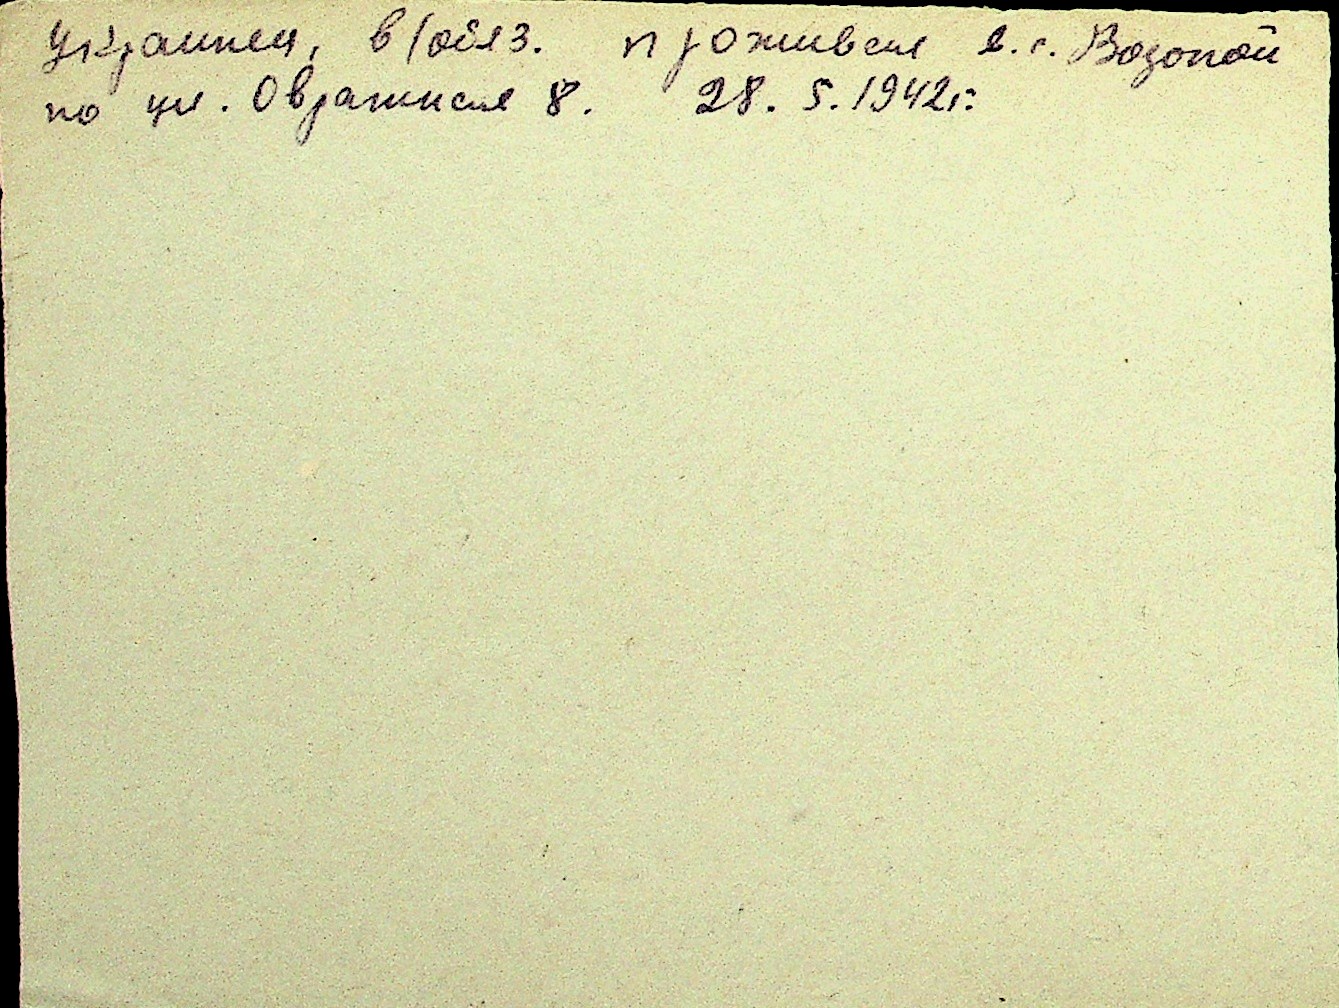 украинец, в/обяз. проживал в с. Водопой
по ул. Овражная 8. 28. 5. 1942г.